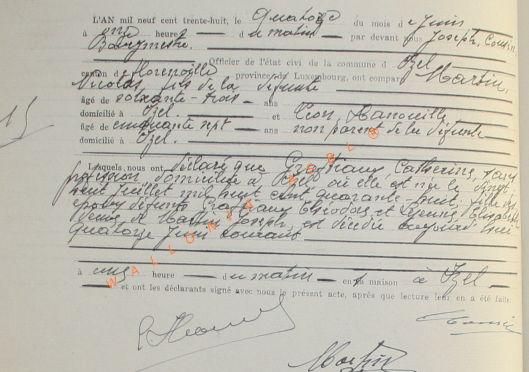 L'AN mil neuf cent trente-huit, le Quatorze du mois de Juin
à onze heure du matin par devant nous Joseph, Cousin
Bourgmestre
Officier de l'état civil de la commune d'Izel
canton de Florenville province de Luxembourg, ont comparu Martin,
Nicolas, fils de la défunte
âgé de soixante-trois ans
domicilié à Izel et Léon,
âgé de cinquante sept ans non parent de la défunte
domicilié à Izel.
15
Lesquels nous ont déclaré que Catherine, sans
profession domiciliée à Izel où elle est née le vingt
huit juillet mil huit cent quarante huit, fille des
époux défunts Théodore et Elisabeth
veuve de Martin Joseph, est décédée aujourd'hui
quatorze Juin courant
WALLONIE
à heure du matin en sa maison à Izel
et ont les déclarants signé avec nous le présent acte, après que lecture leur en a été faite
Martin